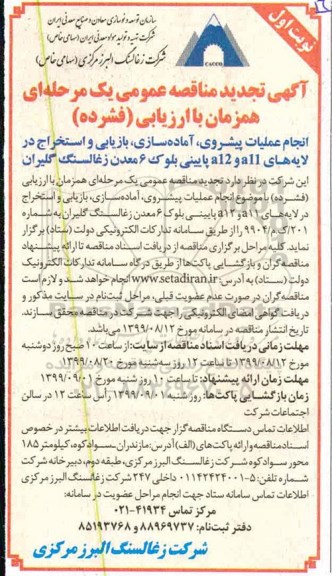 نوبت اول
سازمان توسعه و نوسازی معادن و صنایع معدنی ایران
شرکت تهیه و تولید مواد معدنی ایران (سهامی خاص)
شرکت زغالسنگ البرز مرکزی (سهامی خاص)
آگهی تجدید مناقصه عمومی یک مرحله‌ای
همزمان با ارزیابی (فشرده)
انجام عملیات پیشروی، آماده‌سازی، بازیابی و استخراج در
لایه‌های a11 و a12 پایینی بلوک ۶ معدن زغالسنگ گلیران
این شرکت در نظر دارد تجدید مناقصه عمومی یک مرحله‌ای همزمان با ارزیابی
(فشرده) با موضوع انجام عملیات پیشروی، آماده‌سازی، بازیابی و استخراج
در لایه‌های a11 و a12 پایینی بلوک ۶ معدن زغالسنگ گلیران به شماره
۲۰۱/ک/۹۹۰۴ را از طریق سامانه تدارکات الکترونیکی دولت (ستاد) برگزار
نماید. کلیه مراحل برگزاری مناقصه از دریافت اسناد مناقصه تا ارائه پیشنهاد
مناقصه‌گران و بازگشایی پاکت‌ها از طریق درگاه سامانه تدارکات الکترونیک
دولت (ستاد) به آدرس: www.setadiran.ir انجام خواهد شد و لازم است
مناقصه‌گران در صورت عدم عضویت قبلی، مراحل ثبت‌نام در سایت مذکور و
دریافت گواهی امضای الکترونیکی را جهت شرکت در مناقصه محقق سازند.
تاریخ انتشار مناقصه در سامانه مورخ ۱۳۹۹/۰۸/۱۲ می‌باشد.
مهلت زمانی دریافت اسناد مناقصه از سایت: از ساعت ۱۰ صبح روز دوشنبه
مورخ ۱۳۹۹/۰۸/۱۲ تا ساعت ۱۲ روز سه‌شنبه مورخ ۱۳۹۹/۰۸/۲۰
مهلت زمان ارائه پیشنهاد: تا ساعت ۱۰ روز شنبه مورخ ۱۳۹۹/۰۹/۰۱
زمان بازگشایی پاکت‌ها: روز شنبه ۱۳۹۹/۰۹/۰۱ راس ساعت ۱۲ در سالن
اجتماعات شرکت
اطلاعات تماس دستگاه مناقصه گزار جهت دریافت اطلاعات بیشتر در خصوص
اسناد مناقصه و ارائه پاکت‌های (الف) آدرس: مازندران-سوادکوه، کیلومتر ۱۸۵
محور سوادکوه شرکت زغالسنگ البرز مرکزی، طبقه دوم، دبیرخانه شرکت
شماره تلفن: ۵-۰۱۱۴۲۴۲۴۰۰۱ داخلی ۲۴۷ شرکت زغالسنگ البرز مرکزی
اطلاعات تماس سامانه ستاد جهت انجام مراحل عضویت در سامانه:
مرکز تماس ۴۱۹۳۴-۰۲۱
دفتر ثبت‌نام: ۸۸۹۶۹۷۳۷ و ۸۵۱۹۳۷۶۸
شرکت زغالسنگ البرز مرکزی